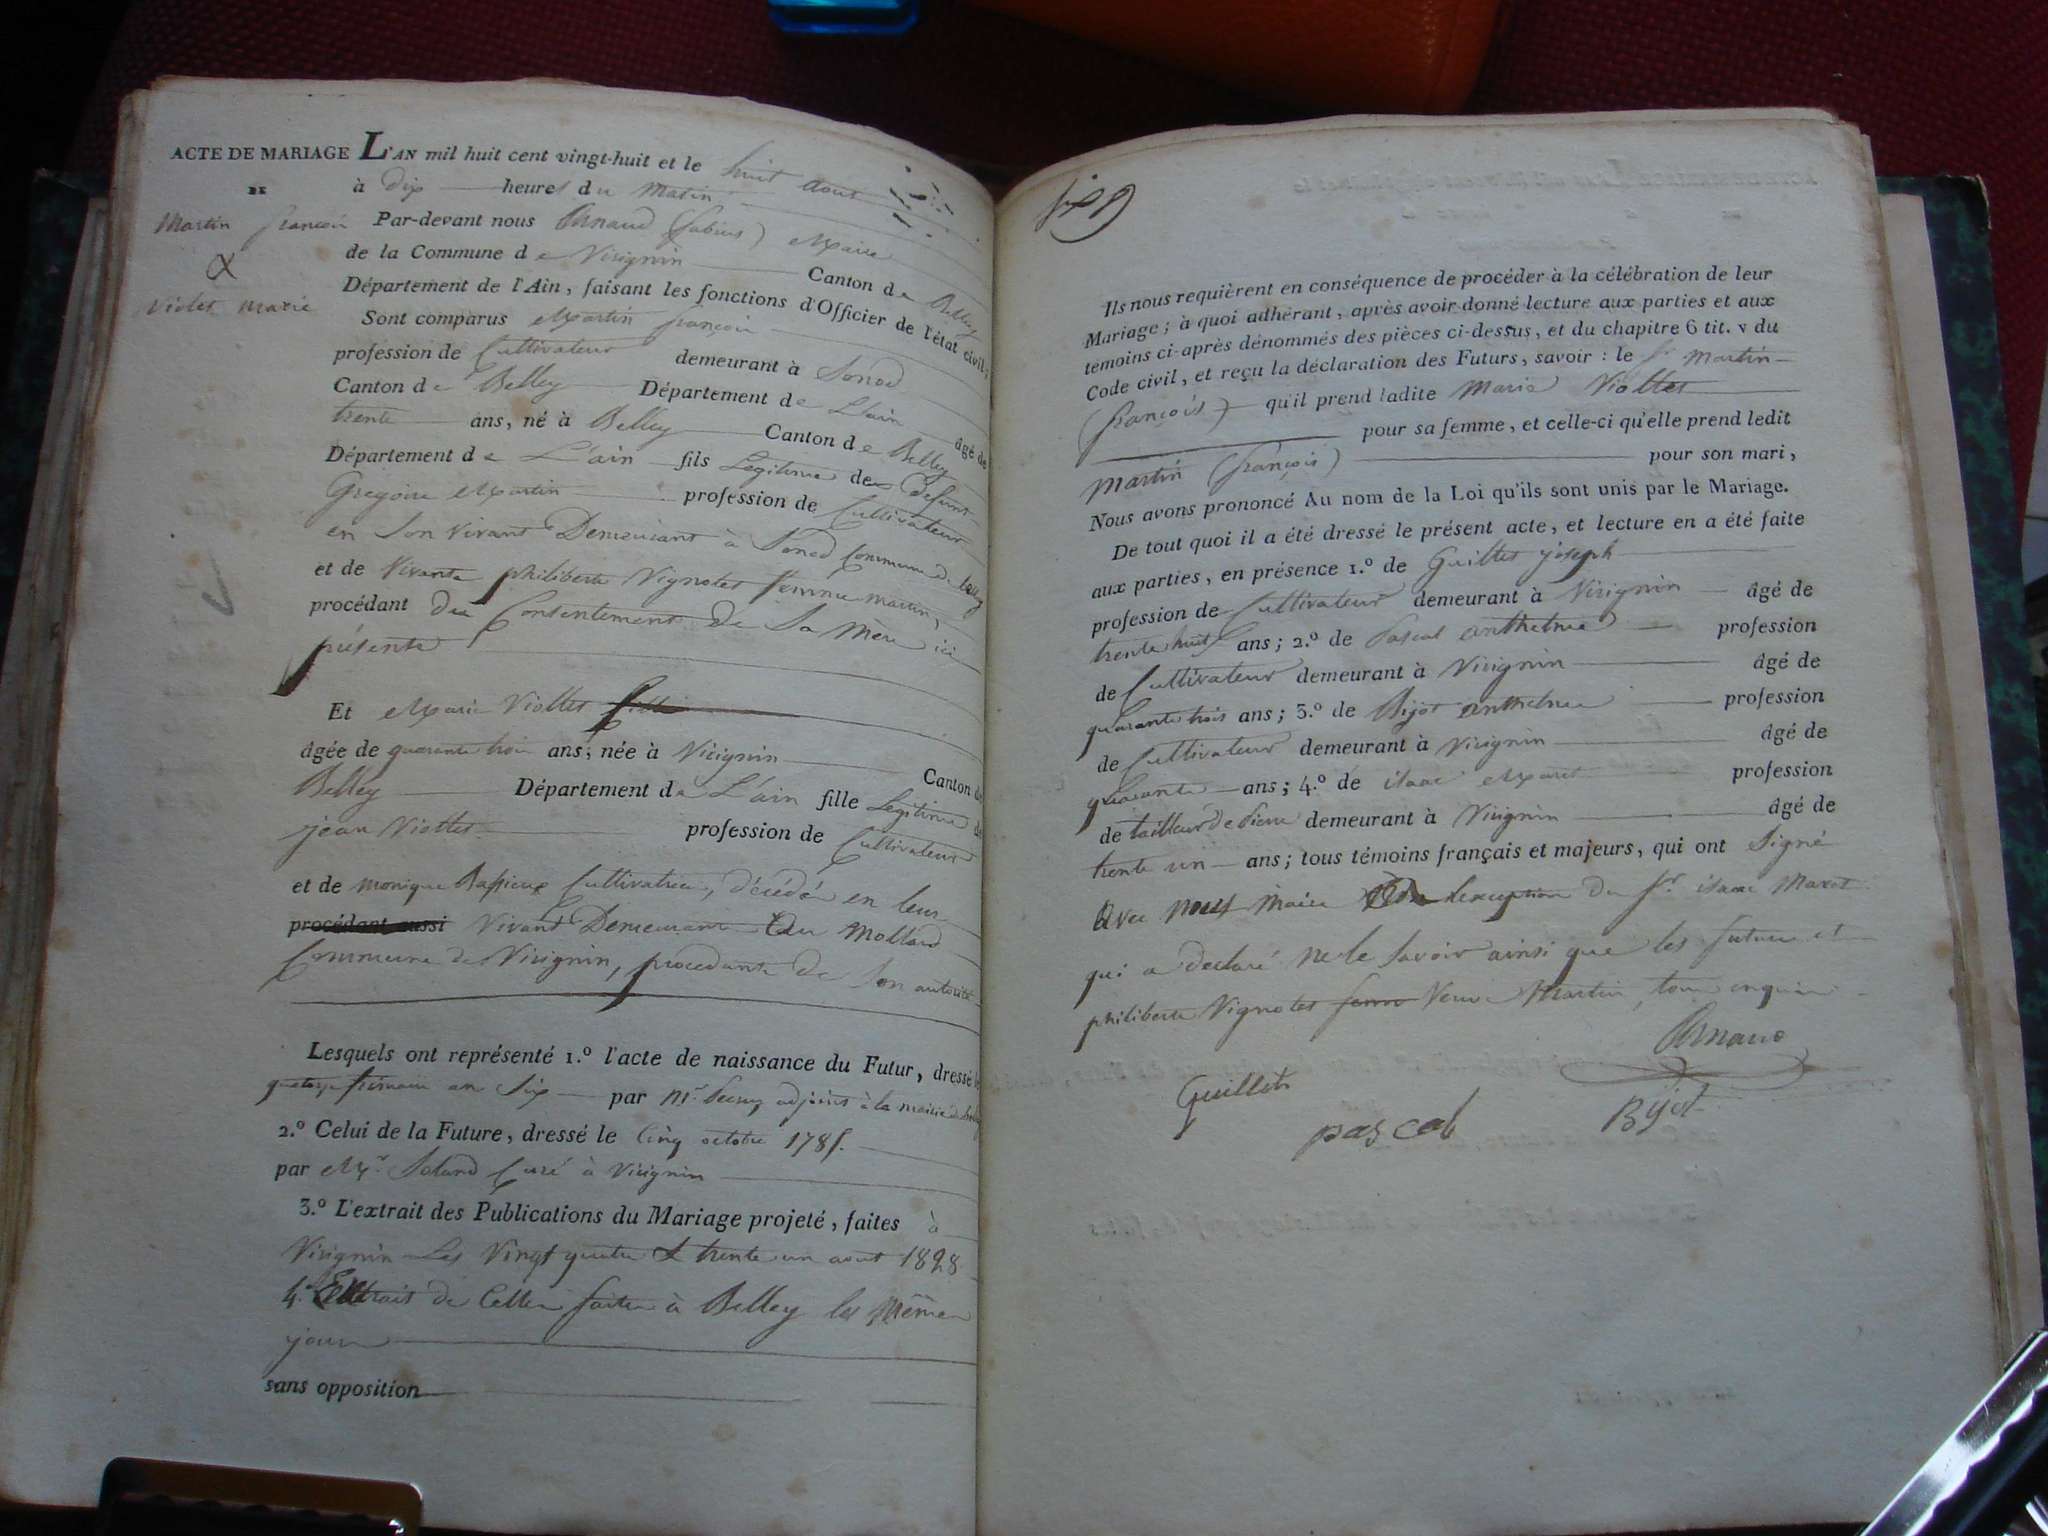 ACTE DE MARIAGE L'AN mil huit cent vingt-huit et le huit aout
DE à dix heures du matin
Martin françois Par-devant nous Arnaud (fabius) Maire
& de la Commune de Virignin Canton de Belley
Violet marie Département de l'Ain, faisant les fonctions d'Officier de l'état civil,
Sont comparus Martin françois
profession de Cultivateur demeurant à Sonod
Canton de Belley Département de L'ain âgé de
trente ans, né à Belley Canton de Belley
Département de L'ain fils Legitime de Defunt
Gregoire Martin profession de Cultivateur
en Son vivant Demeurant à Sonod Commune de belley
et de Vivante philiberte Vignotes femme martin,
procédant du Consentement De Sa Mère ici
présente
Et Marie Viollet fille
âgée de quarante trois ans, née à Virignin Canton de
Belley Département de L'ain fille Legitime de
jean Viollet profession de Cultivateur
et de monique Cultivatrice, décédés en leur
procédant aussi Vivant Demeurant Au Mollard
Commune de Virignin, procédante de Son autorité
Lesquels ont représenté 1.º l'acte de naissance du Futur, dressé le
an Six par Mr adjoint à la mairie de
2.º Celui de la Future, dressé le Cinq octobre 1785.
par Mr. Soland Curé à Virignin
3.º L'extrait des Publications du Mariage projeté, faites à
Virignin Les Vingt quatre & trente un aout 1828
4.º Extrait de Celles faites à Belley les Mêmes
jours
sans opposition
Ils nous requièrent en conséquence de procéder à la célébration de leur
Mariage; à quoi adhérant, après avoir donné lecture aux parties et aux
témoins ci-après dénommés des pièces ci-dessus, et du chapitre 6 tit. v du
Code civil, et reçu la déclaration des Futurs, savoir : le Sr Martin
(françois) qu'il prend ladite Marie Viollet
pour sa femme, et celle-ci qu'elle prend ledit
Martin (françois) pour son mari,
Nous avons prononcé Au nom de la Loi qu'ils sont unis par le Mariage.
De tout quoi il a été dressé le présent acte, et lecture en a été faite
aux parties, en présence 1.º de Guillet joseph
profession de Cultivateur demeurant à Virignin âgé de
trente huit ans; 2.º de Pascal anthelme profession
de Cultivateur demeurant à Virignin âgé de
quarante trois ans; 3.º de Bijot anthelme profession
de Cultivateur demeurant à Virignin âgé de
quarante ans; 4.º de isaac Maret profession
de tailleur de Pierre demeurant à Virignin âgé de
trente un ans; tous témoins français et majeurs, qui ont Signé
Avec nous Maire lexception du Sr. isaac Maret
qui a declaré ne le Savoir ainsi que les futurs et
philiberte Vignotes femme Veuve Martin, tous enquis
Arnaud
Guillet
pascal
Bijot